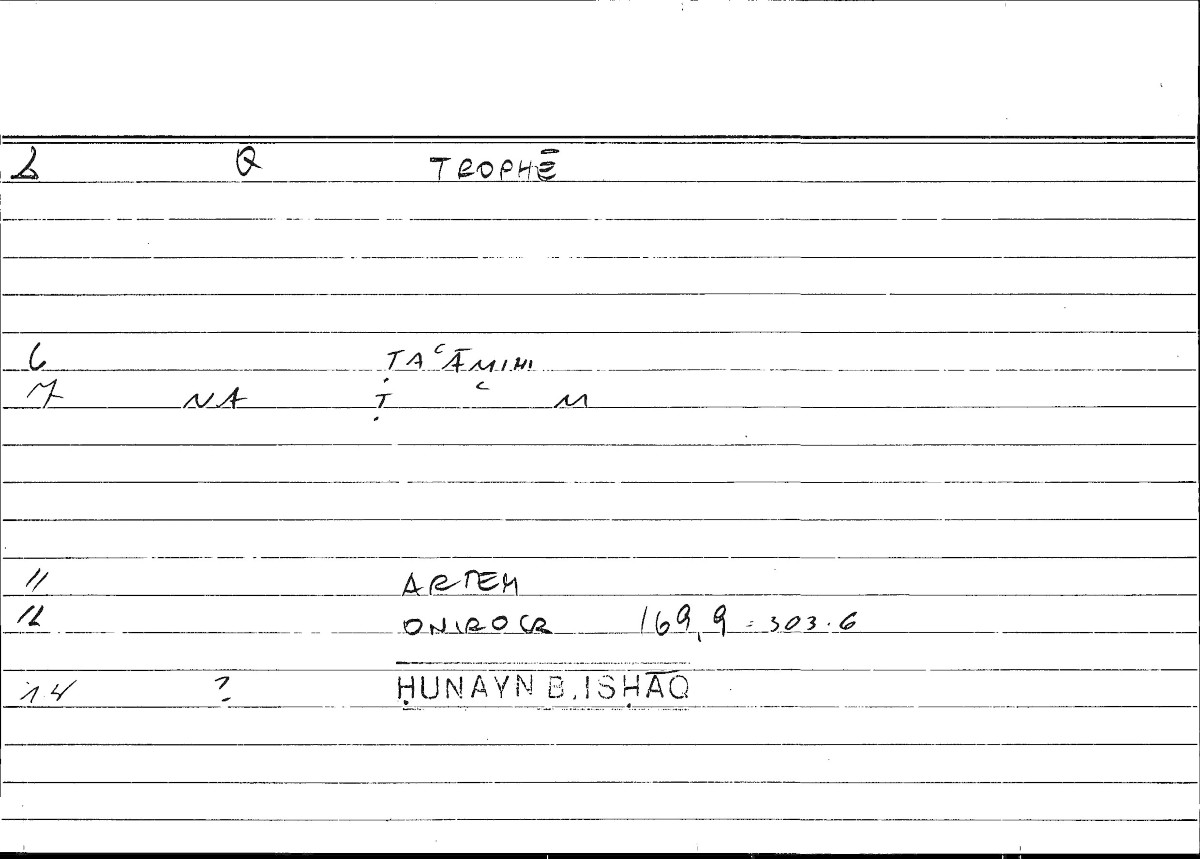 Q TROPHĒ
6 ṬAʿĀMIHI
7 NA Ṭ ʿ M
11 ARTEM
12 ONIROCR 169,9 = 303.6
14 ? ḤUNAYN B. ISḤĀQ